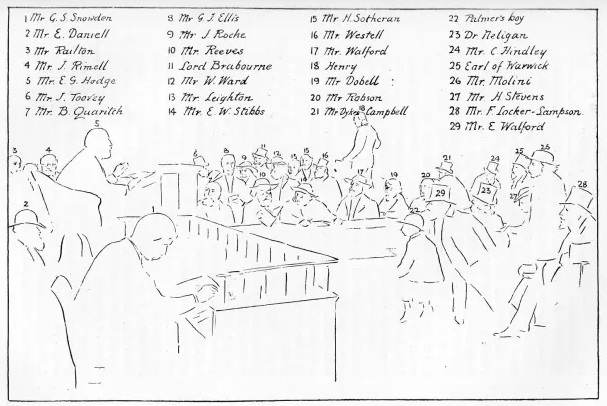 1 Mr G. S. Snowden
2 Mr. E. Daniell
3 Mr Railton
4 Mr. J. Rimell
5 Mr. E. G. Hodge
6 Mr. J. Toovey
7 Mr. B. Quaritch
8 Mr G. I. Ellis
9 Mr. J. Roche
10 Mr. Reeves
11 Lord Brabourne
12 Mr W. Ward
13 Mr. Leighton
14 Mr. E. W. Stibbs
15 Mr. H. Sotheran
16 Mr. Westell
17 Mr. Walford
18 Henry
19 Mr. Dobell
20 Mr Robson
21 Mr Dykes Campbell
22 Palmer's boy
23 Dr Neligan
24 Mr. C. Hindley
25 Earl of Warwick
26 Mr. Molini
27 Mr. H. Stevens
28 Mr. F. Locker-Lampson
29 Mr. E Walford
18
5
3
4
6
8
9
11
12
13
15
16
21
24
25
26
7
10
14
17
19
20
29
23
27
28
2
22